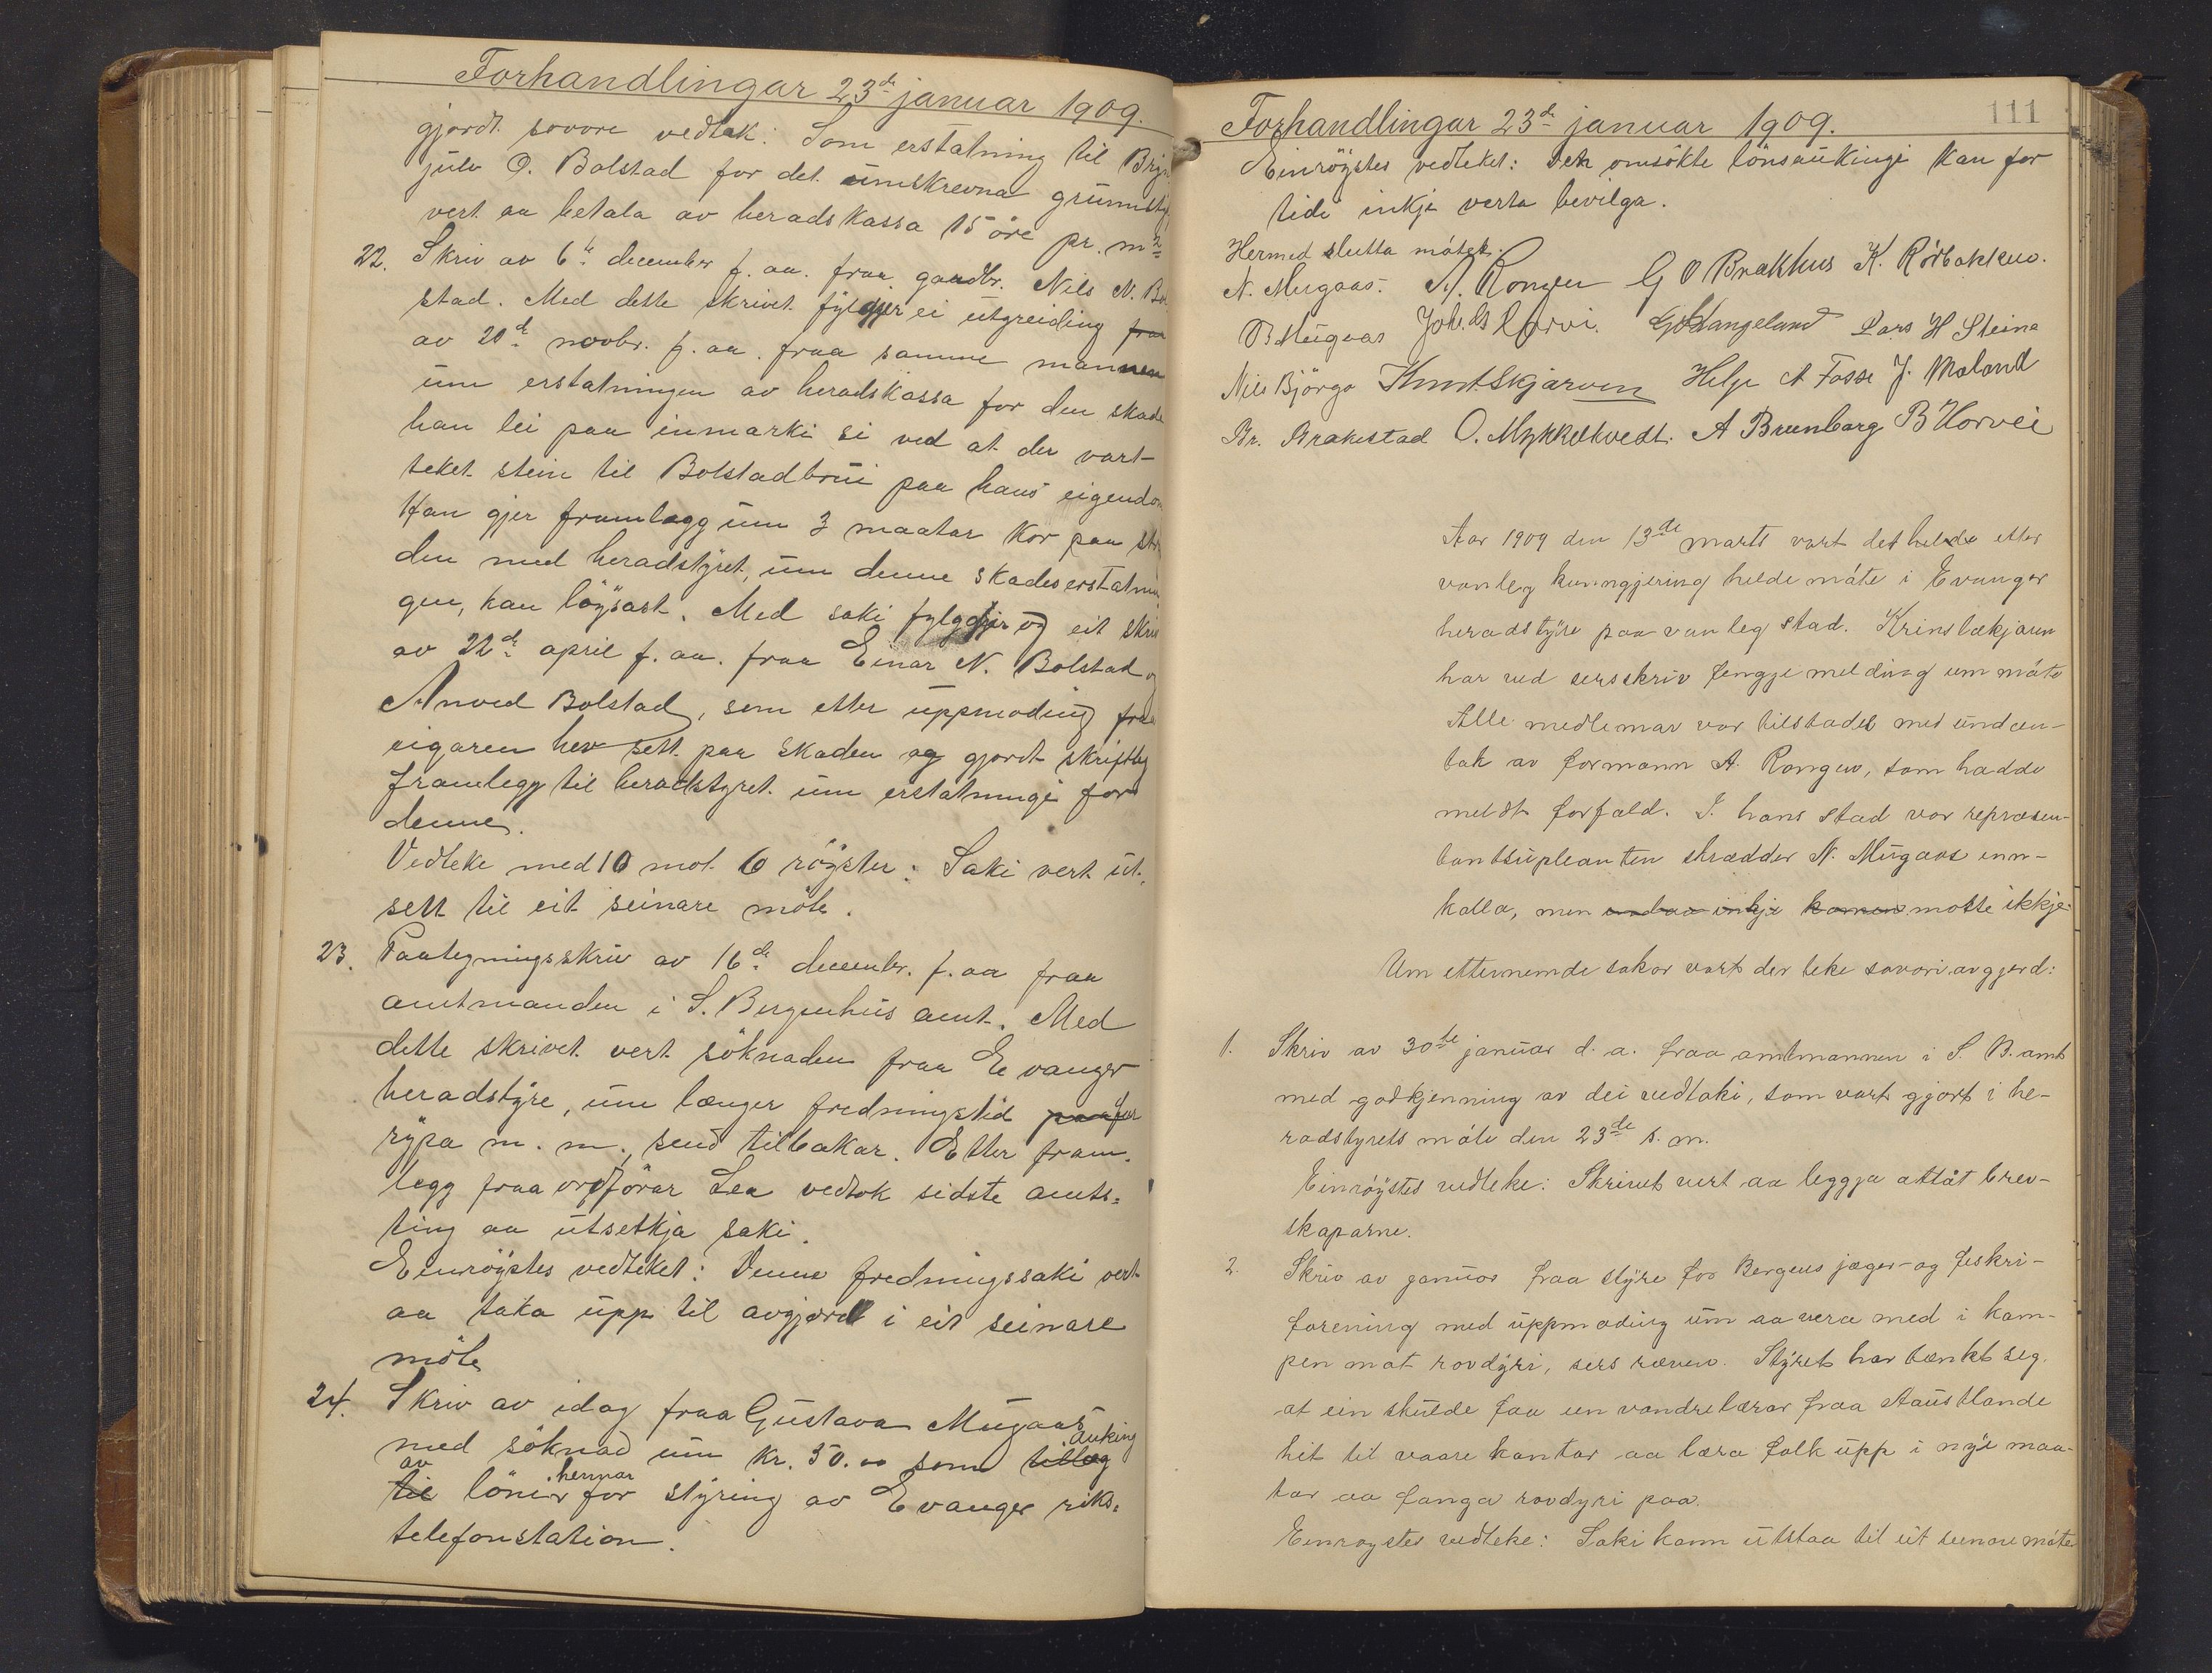 Forhandlingar 23de januar 1909.
gjordt sovore vedtak: Som erstatning til Bryn
julv O. Bolstad for det umskrevna grunnsty
vert aa betala av heradskassa 15 öre pr. m2
22. Skriv av 6te december f. aa. fraa gardbr. Nils N. Bol
stad. Med dette skrivet fylgjer ei utgreiding fraa
av 20de novbr. f. aa. fraa samme mannen
um erstatningen av heradskassa for den skade
han lei paa inmarki si ved at der vart
teket stein til Bolstadbrui paa hans eigendom
Han gjer framlegg um 3 maatar kor paa stri
den med heradstyret, um denne skadeserstatnin
gen, kan löysast. Med saki fylgjer og eit skriv
av 22de april f. aa. fraa Einar N. Bolstad og
Anved Bolstad, som etter uppmoding fraa
eigaren hev sett paa skaden og gjordt skriftleg
framlegg til heradstyret um erstatningi for
denne.
Vedteke med 10 mot 6 röyster: Saki vert ut-
sett til eit seinare möte.
23. Paategningsskriv av 16de decembr. f. aa fraa
amtmanden i S. Bergenhus amt. Med
dette skrivet vert söknaden fraa Evanger
heradstyre, um længer fredningstid paa for
rypa m. m., send tilbakar. Etter fram-
legg fraa ordförar Lea vedtok sidste amts-
ting aa utsetkja saki.
Einröystes vedteket: Denne fredningssaki vert
aa taka upp til avgjord i eit seinare
möte
24. Skriv av idag fraa Gustava Mugaas
med söknad um kr. 50.00 som tillæg auking
til av löni hennar for styring av Evanger riks-
telefonstation.
111
Forhandlingar 23de januar 1909.
Einröystes vedteket: Den omsökte lönsaukingi kan for
tidi inkje verta bevilga.
Hermed slutta mötet.
N. Mugaas. A. Rongen G O Brakhus K. Rörbakken.
B Mugaas Joh. Ls Horvi. G. Langeland Lars H Steine
Nils Björgo Knut Skjerven Helge A Fosse J. Moland
Br. Brakestad O. Mykkeltvedt. A Brunborg B Horvei
Aar 1909 den 13de marts vart det helde etter
vanleg kunngjering helde möte i Evanger
heradstyre paa vanleg stad. Krinslækjaren
har ved sersskriv fengje melding um möte
Alle medlemar var tilstades med undan-
tak av formann A. Rongen, som hadde
meldt forfald. I hans stad var repræsen-
tantsupleanten skrædder N. Mugaas inn-
kalla, men endaa inkje komen motte ikkje.
Um etternemde sakor vart der teke sovori avgjerd:
1. Skriv av 30te januar d. a. fraa amtmannen i S. B. amt
med godkjenning av dei vedtaki, som vart gjort i he-
radstyrets möte den 23de s. m.
Einröystes vedteke: Skrivet vert aa leggja attåt brev-
skaparne.
2. Skriv av januar fraa styre for Bergens jæger- og fiskri-
forening med uppmoding um aa vera med i kam-
pen mot rovdyri, sers ræven. Styret har tænkt seg.
at ein skulde faa en vandrelærar fraa Austlande
hit til vaare kantar aa læra folk upp i nye maa-
tar aa fanga rovdyri paa.
Einröystes vedteke: Saki kann utstaa til eit seinare möte